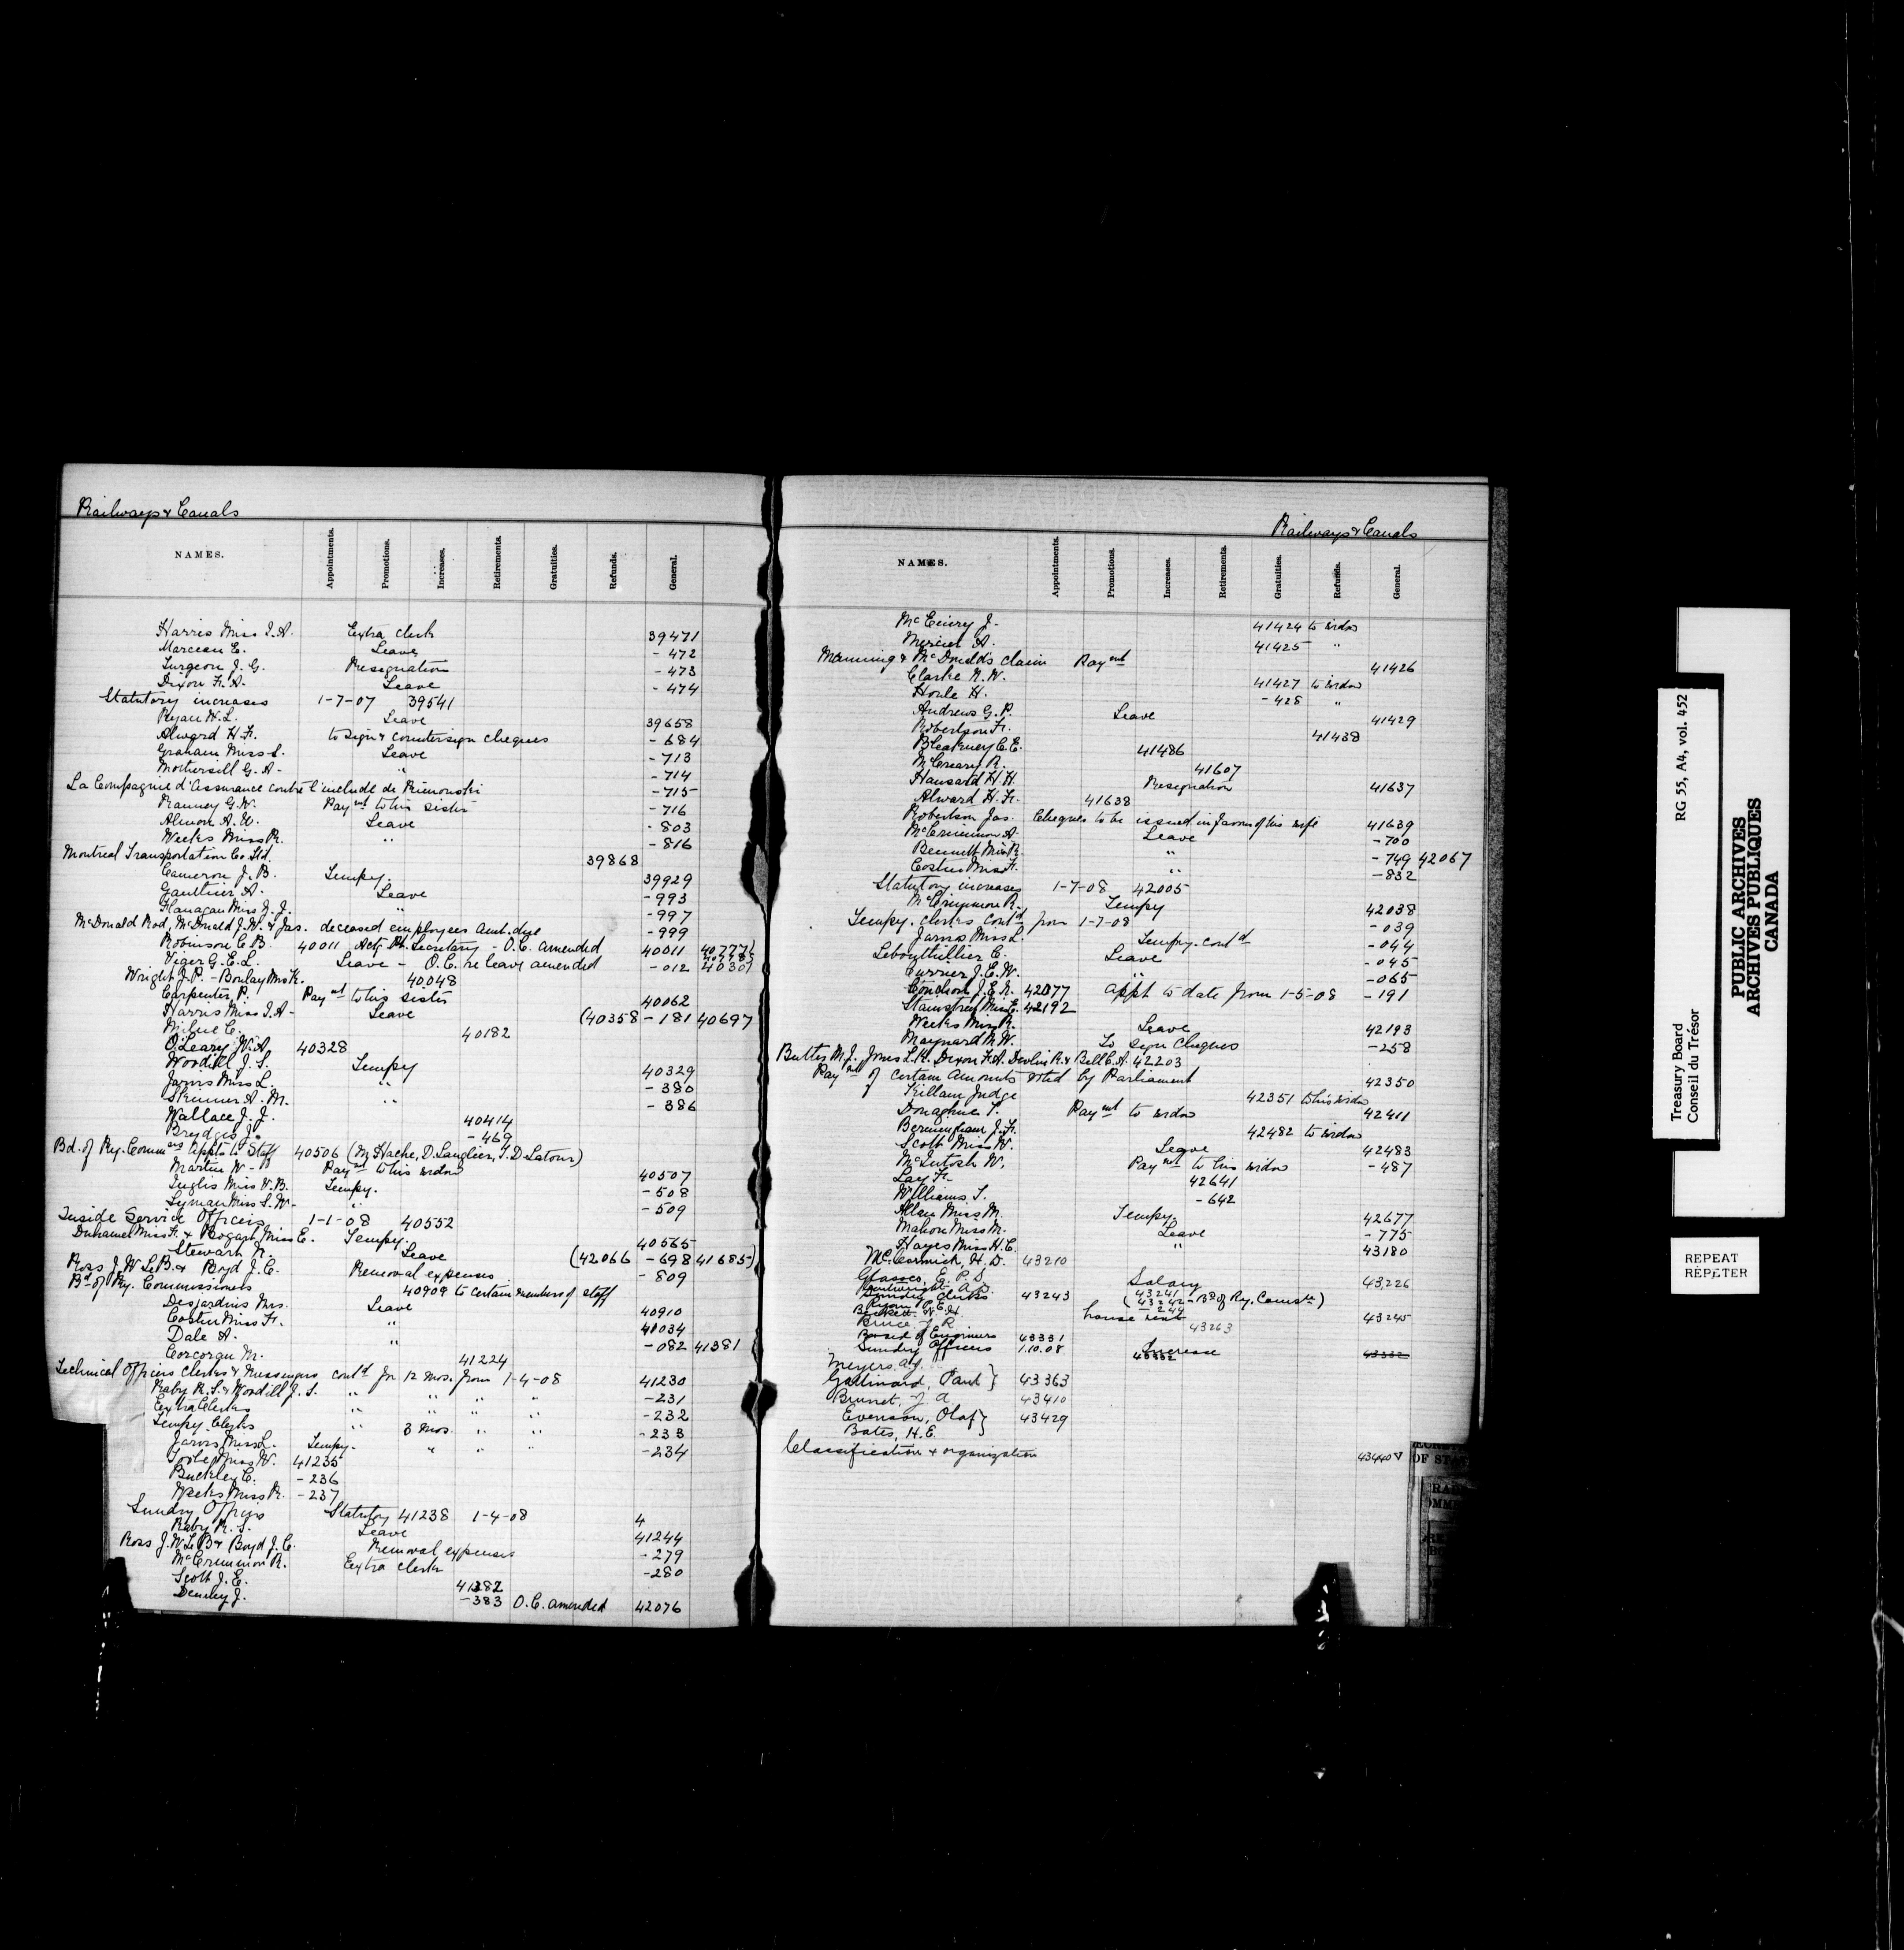 Railways & Canals
NAMES. Appointments. Promotions. Increases. Retirements. Gratuities. Refunds. General.
Harris Miss I.A. Extra clerk 39471
Marceau E. Leave -472
Surgeon J.G. Resignation -473
Dixon F.A. Leave -474
Statutory increases 1-7-07 39541
Ryan W.L. Leave 39658
Alward H.F. to sign & countersign cheques -684
Graham Miss L. Leave -713
Mothersill G.A. " -714
La Compagnie d'Assurance contre l'incendie de Rimouski -715
Ranney G.W. Paymt to his sister -716
Almon A.W. Leave -803
Weeks Miss R. " -816
Montreal Transportation Co Ltd. 39868
Cameron J.B. Tempy. 39929
Gauthier A. Leave -993
Flanagan Miss J.J. " -997
McDonald Rod, McDonald J.W. & Jas. deceased employees amt. due -999
Robinson C.B. 40011 Actg Pte. Secretary - O.C. amended 40011 40777
Viger G.E.L. Leave - O.C. re leave amended -012 40307
Wright J.P. - Boulay Miss K. 40048
Carpenter P. Paymt to his sister 40062
Harris Miss I.A. Leave (40358 -181 40697
Milne C. 40182
O'Leary W.A. 40328
Woodill J.S. Tempy 40329
Jarvis Miss L. " -380
Skinner A.M. " -386
Wallace J.J. 40414
Brydges J. -469
Bd. of Ry. Commrs Appts to Staff 40506 (M. Hache, D. Langlier, T.D. Latour)
Martin W. Paymt to his widow 40507
Inglis Miss V.B. Tempy. -508
Lyman Miss S.W. " -509
Inside Service Officers 1-1-08 40552
Duhamel Miss F. & Bogart Miss E. Tempy. 40565
Stewart R. Leave (42066 -698 41685)
Ross J.W. Le B. & Boyd J.C. Removal expenses -809
Bd of Ry. Commissioners 40909 to certain members of staff
Desjardins Mrs. Leave 40910
Costin Miss F. " 41034
Dale A. " -082 41381
Corcoran M. 41224
Technical Officers Clerks & Messengers contd for 12 mos. from 1-4-08 41230
Raby R.S. & Woodill J.S. " " " " -231
Extra Clerks " " " " -232
Tempy Clerks " 3 mos. " " -233
Jarvis Miss L. Tempy. " " " -234
Miss W. 41235
Buckley C. -236
Weeks Miss R. -237
Sundry Officers Statutory 41238 1-4-08 4
Raby R.S. Leave 41244
Ross J.W. Le B. & Boyd J.C. Removal expenses -279
McCrimmon R. Extra clerk -280
Scott J.E. 41382
J. -383 O.C. amended 42076
Railways & Canals
NAMES. Appointments. Promotions. Increases. Retirements. Gratuities. Refunds. General.
McEniry J. 41424 to widow
Mercier A. 41425 "
Manning & McDonald's claim Paymt 41426
Clarke R.W. 41427 to widow
Houle H. -428 "
Andrews G.P. Leave 41429
Robertson F. 41438
Bleakney C.E. 41486
McCreary R. 41607
Hansard H.H. Resignation 41637
Alward H.F. 41638
Robertson Jas. Cheques to be issued in favour of his wife 41639
McCrimmon A. Leave -700
Bennett Miss R. " -749 42067
Costin Miss F. " -832
Statutory increases 1-7-08 42005
McCrimmon R. Tempy 42038
Tempy. clerks contd from 1-7-08 -039
Jarvis Miss L. Tempy. contd -044
Lebouthillier C. Leave -045
Currier J.E.W. " -065
Conchon J.E.R. 42077 appt to date from 1-5-08 -191
Miss E. 42192
Weeks Miss R. Leave 42193
Maynard M.W. To sign Cheques -258
Butler M.J. Jones L.K. Dixon F.A. Devlin R. & Bell C.A. 42203
Paymt of certain amounts voted by Parliament 42350
Killam Judge 42351 to his widow
Donaghue T. Paymt to widow 42411
Bermingham J.F. 42482 to widow
Scott Miss W. Leave 42483
McIntosh W. Paymt to his widow -487
Lay F. 42641
Williams T. -642
Allan Miss M. Tempy 42677
Mahon Miss M. Leave -775
Hayes Miss H.C. " 43180
McCormick, H.D. 43210
E.P.S. Salary 43226
Sundry Clerks 43243 (43241 43242 - Bd of Ry. Comsrs)
house rent 43245
Bruce J.R. 43263
Board of Engineers 43331
Sundry Officers 1.10.08 Increase 43332 43332
Meyers
Gallinard, Paul } 43363
Brunet, J.A. 43410
Evenson, Olaf } 43429
Bates, H.E.
Classification & organization 43440
RG 55, A4, vol. 452
Treasury Board
Conseil du Trésor
PUBLIC ARCHIVES
ARCHIVES PUBLIQUES
CANADA
REPEAT
RÉPÉTER
OF STA